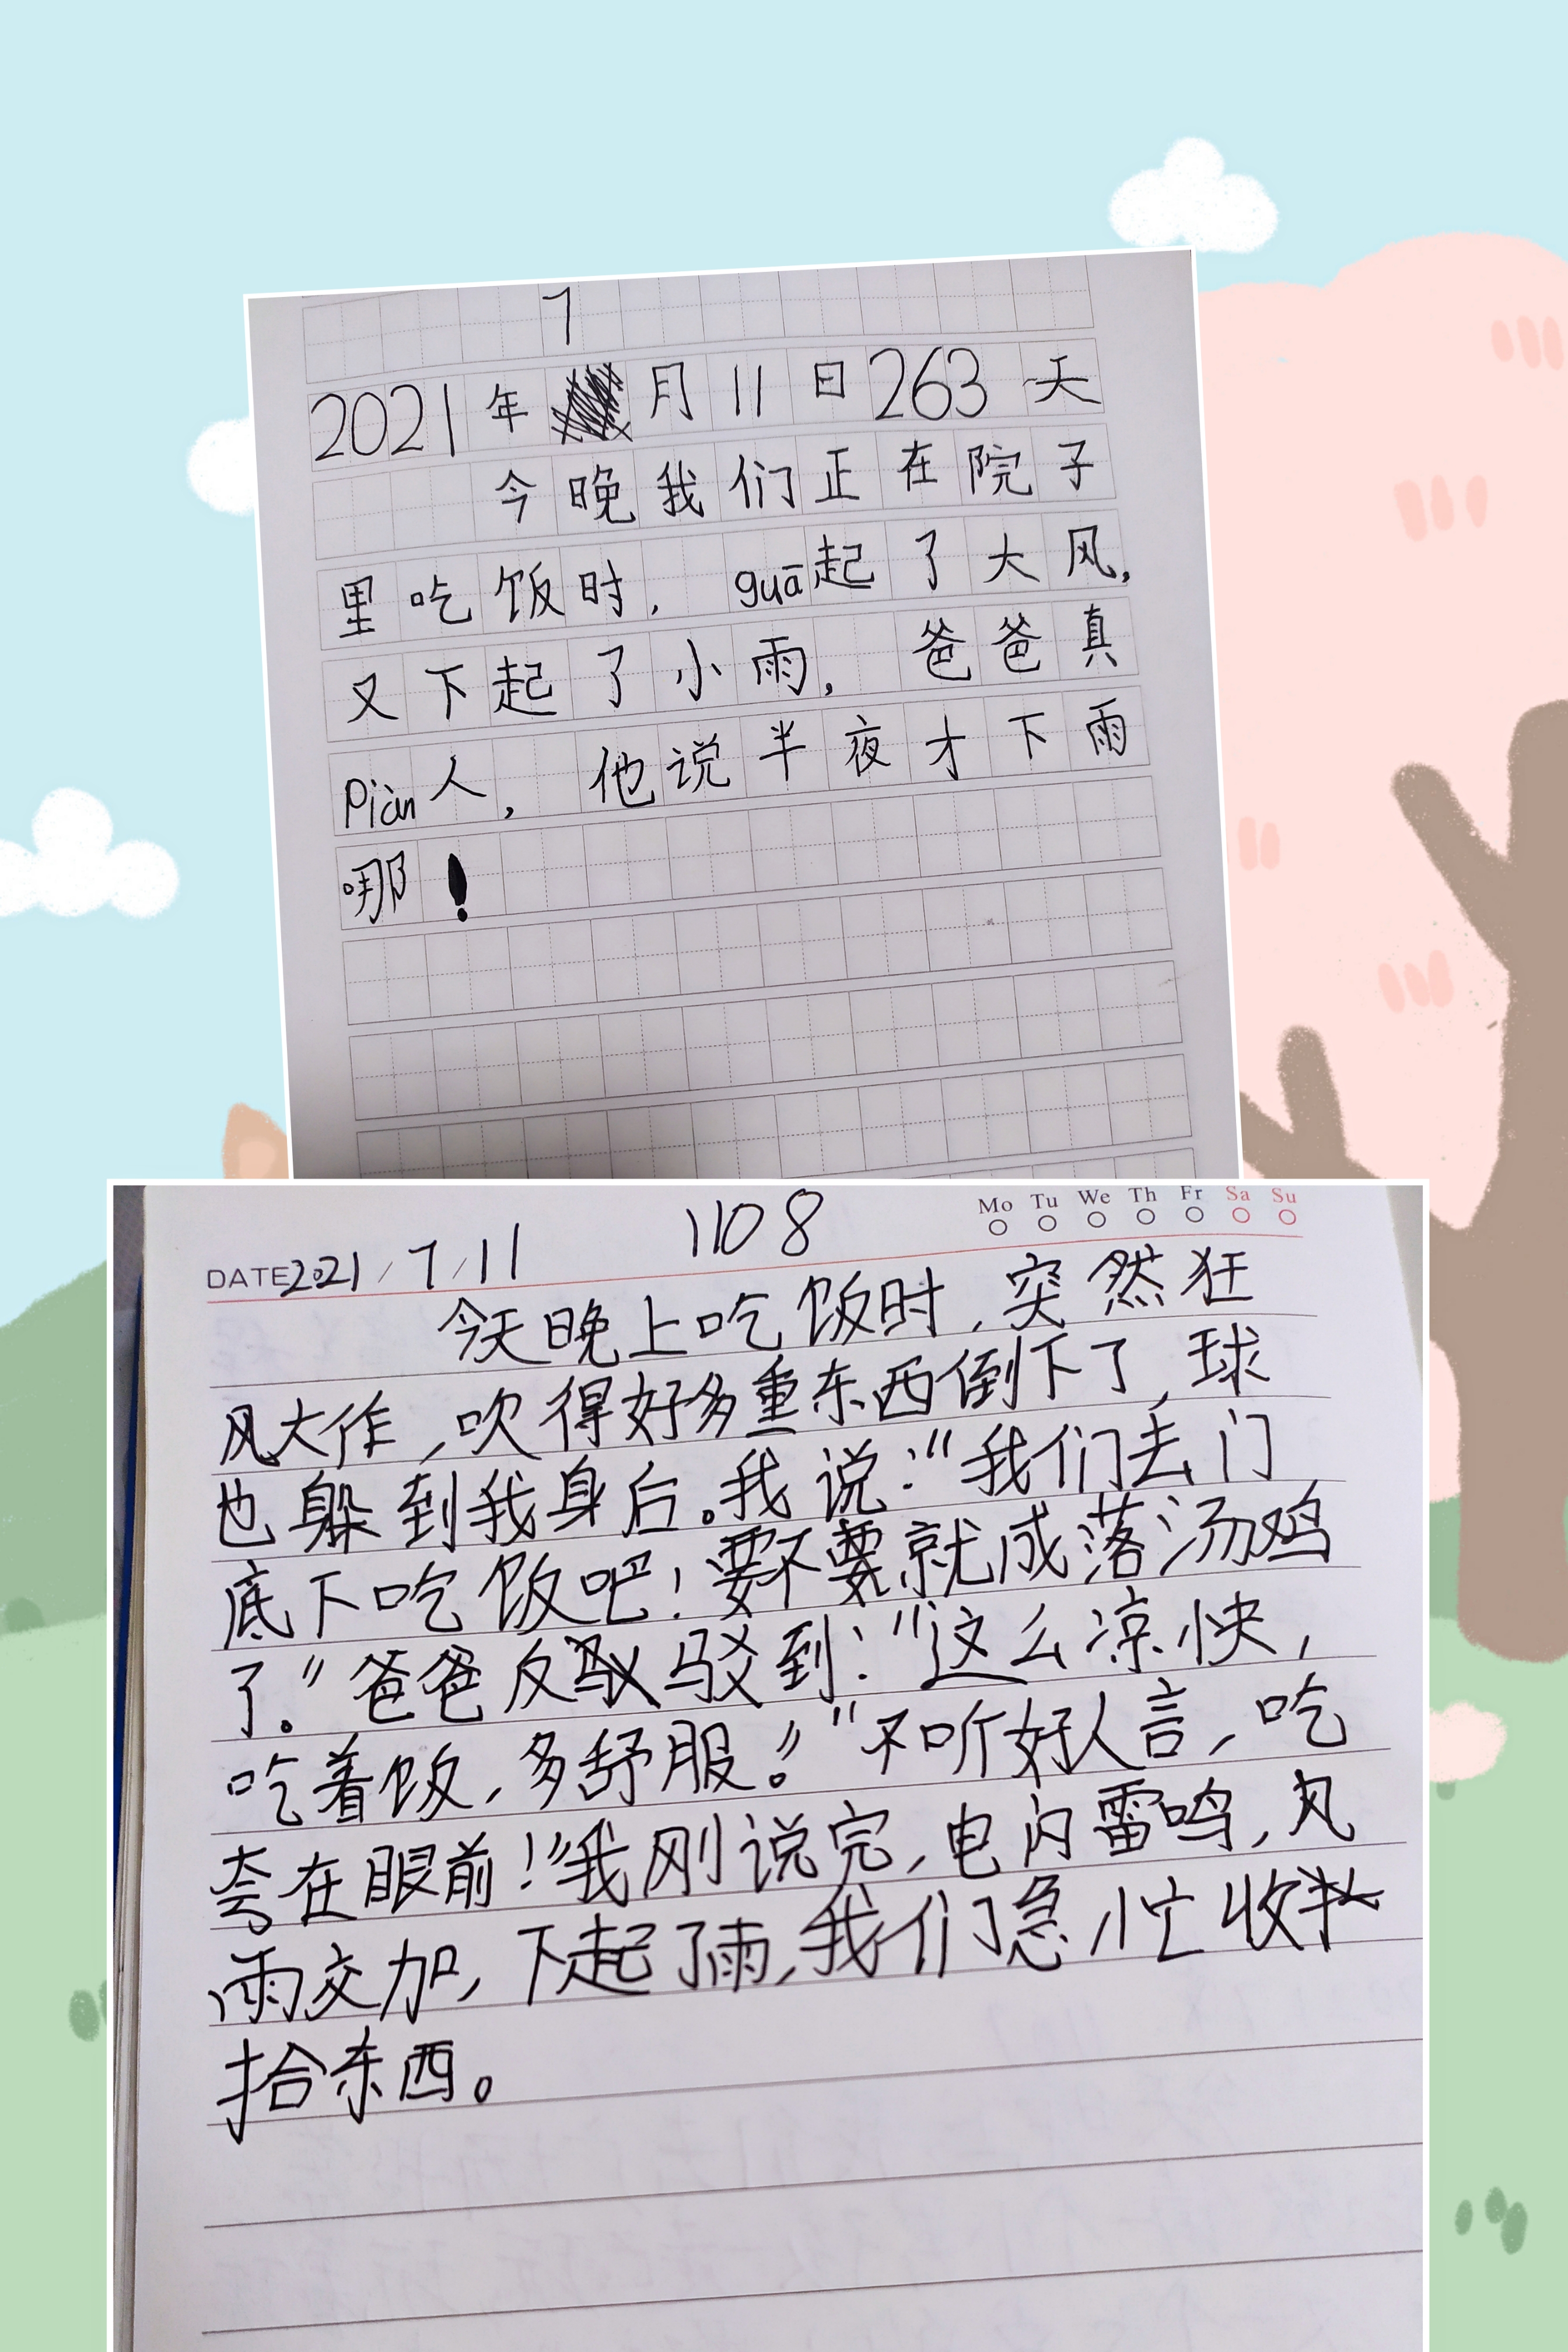 7
2021年月11日263天
今晚我们正在院子
里吃饭时，guā起了大风，
又下起了小雨，爸爸真
Piàn人，他说半夜才下雨
哪！
Mo Tu We Th Fr Sa Su
DATE 2021/7/11 1108
今天晚上吃饭时，突然狂
风大作，吹得好多重东西倒下了，球
也躲到我身后。我说：“我们去门
底下吃饭吧！要不要就成落汤鸡
了。”爸爸反驳到：“这么凉快，
吃着饭，多舒服。”“不听好人言，吃
亏在眼前！”我刚说完，电闪雷鸣，风
雨交加，下起了雨，我们急忙收
拾东西。